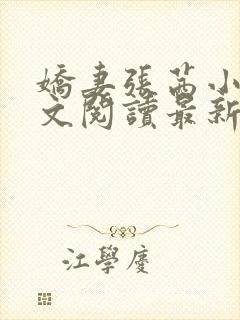 嬌妻張茜小
文閱讀最新
江學慶